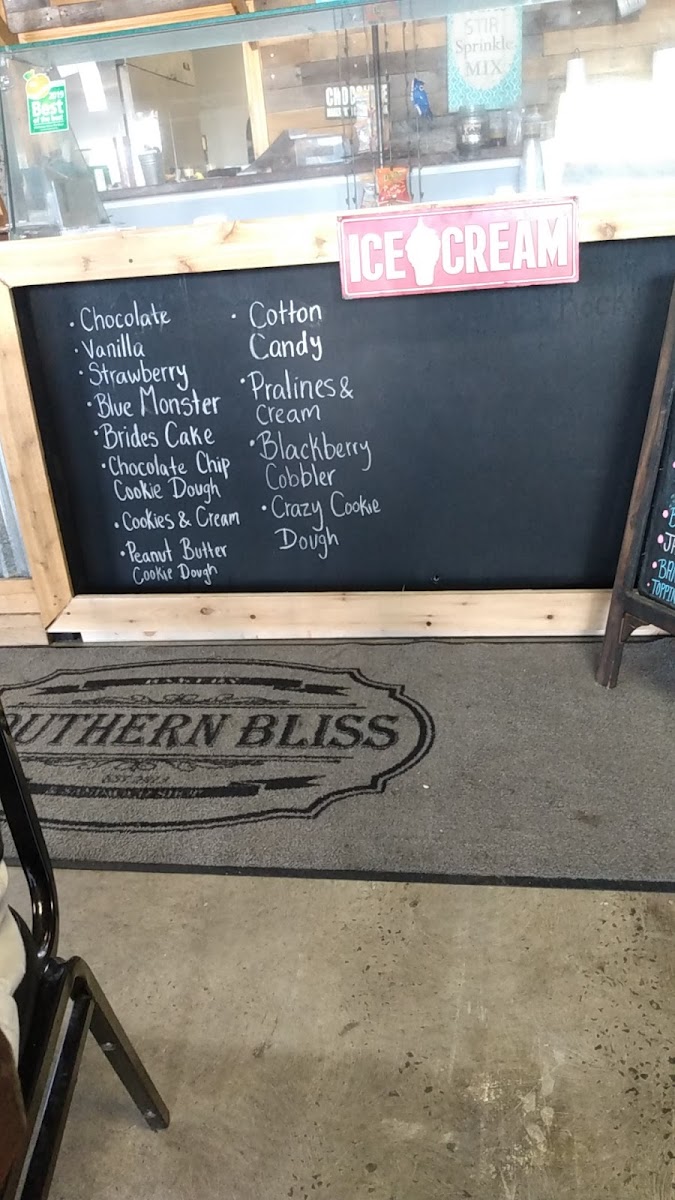 STIR
Sprinkle
MIX
2019
Best
of the best
ICE CREAM
• Chocolate
• Vanilla
• Strawberry
• Blue Monster
• Brides Cake
• Chocolate Chip
Cookie Dough
• Cookies & Cream
• Peanut Butter
Cookie Dough
• Cotton
Candy
• Pralines &
Cream
• Blackberry
Cobbler
• Crazy Cookie
Dough
BAKERY
OUTHERN BLISS
EST 2013